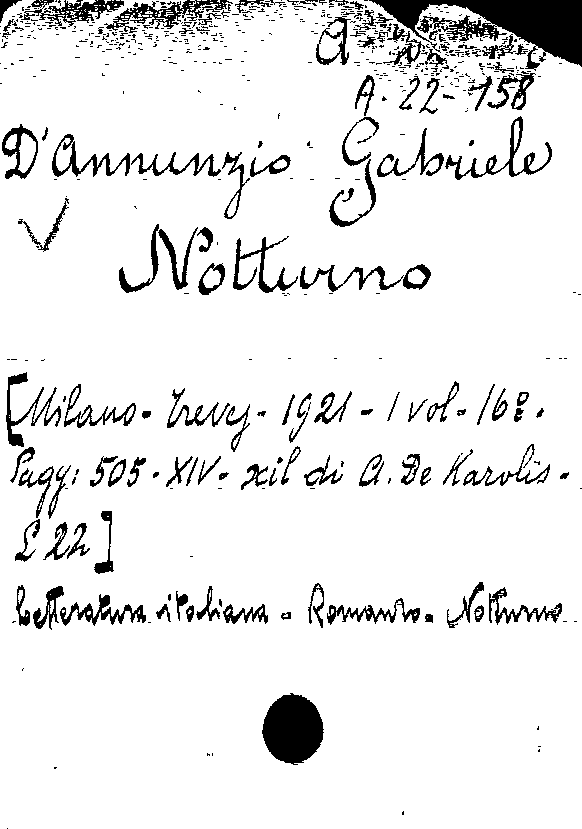 A.
A. 22-158
D'Annunzio Gabriele
Notturno
[Milano - Treves - 1921 - 1 vol - 16º.
Pagg: 505 - XIV - xil di A. De Karolis -
L 22]
Letteratura italiana - Romanzo - Notturno